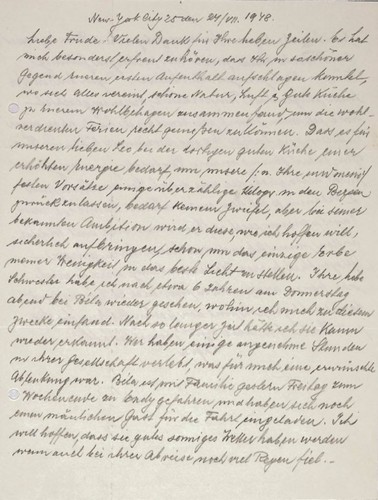 New-York City 25 den 24/VII. 1948.
Liebe Frieda! Vielen Dank für Ihre lieben Zeilen. Es hat
mich besonders erfreut zu hören, dass Sie in so schöner
Gegend Ihren ersten Aufenthalt aufschlagen konntet,
wo sich alles vereint, schöne Natur, Luft & gute Küche
zu Euerem Wohlbehagen zusammenfand um die wohl-
verdienten Ferien recht geniessen zu können. Dass es für
unseren lieben Leo bei der dortigen guten Küche einer
erhöhten Energie bedarf, um unsere
festen Vorsätze einige überzählige Kilogr. in den Bergen
zurückzulassen, bedarf keinem Zweifel, aber bei seiner
bekannten Ambition wird er diese, wie ich hoffen will,
sicherlich aufbringen schon um das einzige Erbe
meiner Wenigkeit in das beste Licht zu stellen. Ihre liebe
Schwester habe ich nach etwa 6 Jahren am Donnerstag
abend bei Béla wieder gesehen, wohin ich mich zu diesem
Zwecke einfand. Nach so langer Zeit hätte ich sie kaum
wieder erkannt. Wir haben einige angenehme Stunden
in ihrer Gesellschaft verlebt, was für mich eine erwünschte
Ablenkung war. Béla ist mit Familie gestern Freitag zum
Wochenende zu gefahren und haben sich noch
einen männlichen Gast für die Fahrt eingeladen. Ich
will hoffen, dass sie gutes sonniges Wetter haben werden
wenn auch bei ihrer Abreise noch viel Regen fiel. -